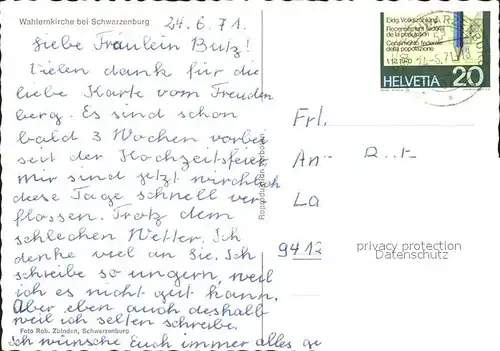 Wahlernkirche bei Schwarzenburg
24.6.71.
Liebe Fräulein Butz!
Vielen dank für die
liebe Karte vom Freuden
berg. Es sind schon
bald 3 Wochen vorbei
seit der Hochzeitsfeier
mir sind jetzt wirklich
diese Tage schnell ver
flossen. Trotz dem
schlechen Wetter. Ich
denke viel an Sie. Ich
schreibe so ungern, weil
ich es nicht gut kann.
Aber eben auch deshalb
weil ich selten schreibe.
Foto Rob. Zbinden, Schwarzenburg
Ich wünsche Euch immer alles ge
Reproduktion verboten
Eidg. Volkszählung
Recensement fédéral
de la population
Censimento federale
della popolazione
1.12.1970
HELVETIA 20
Frl.
An
La
9412
privacy protection
Datenschutz